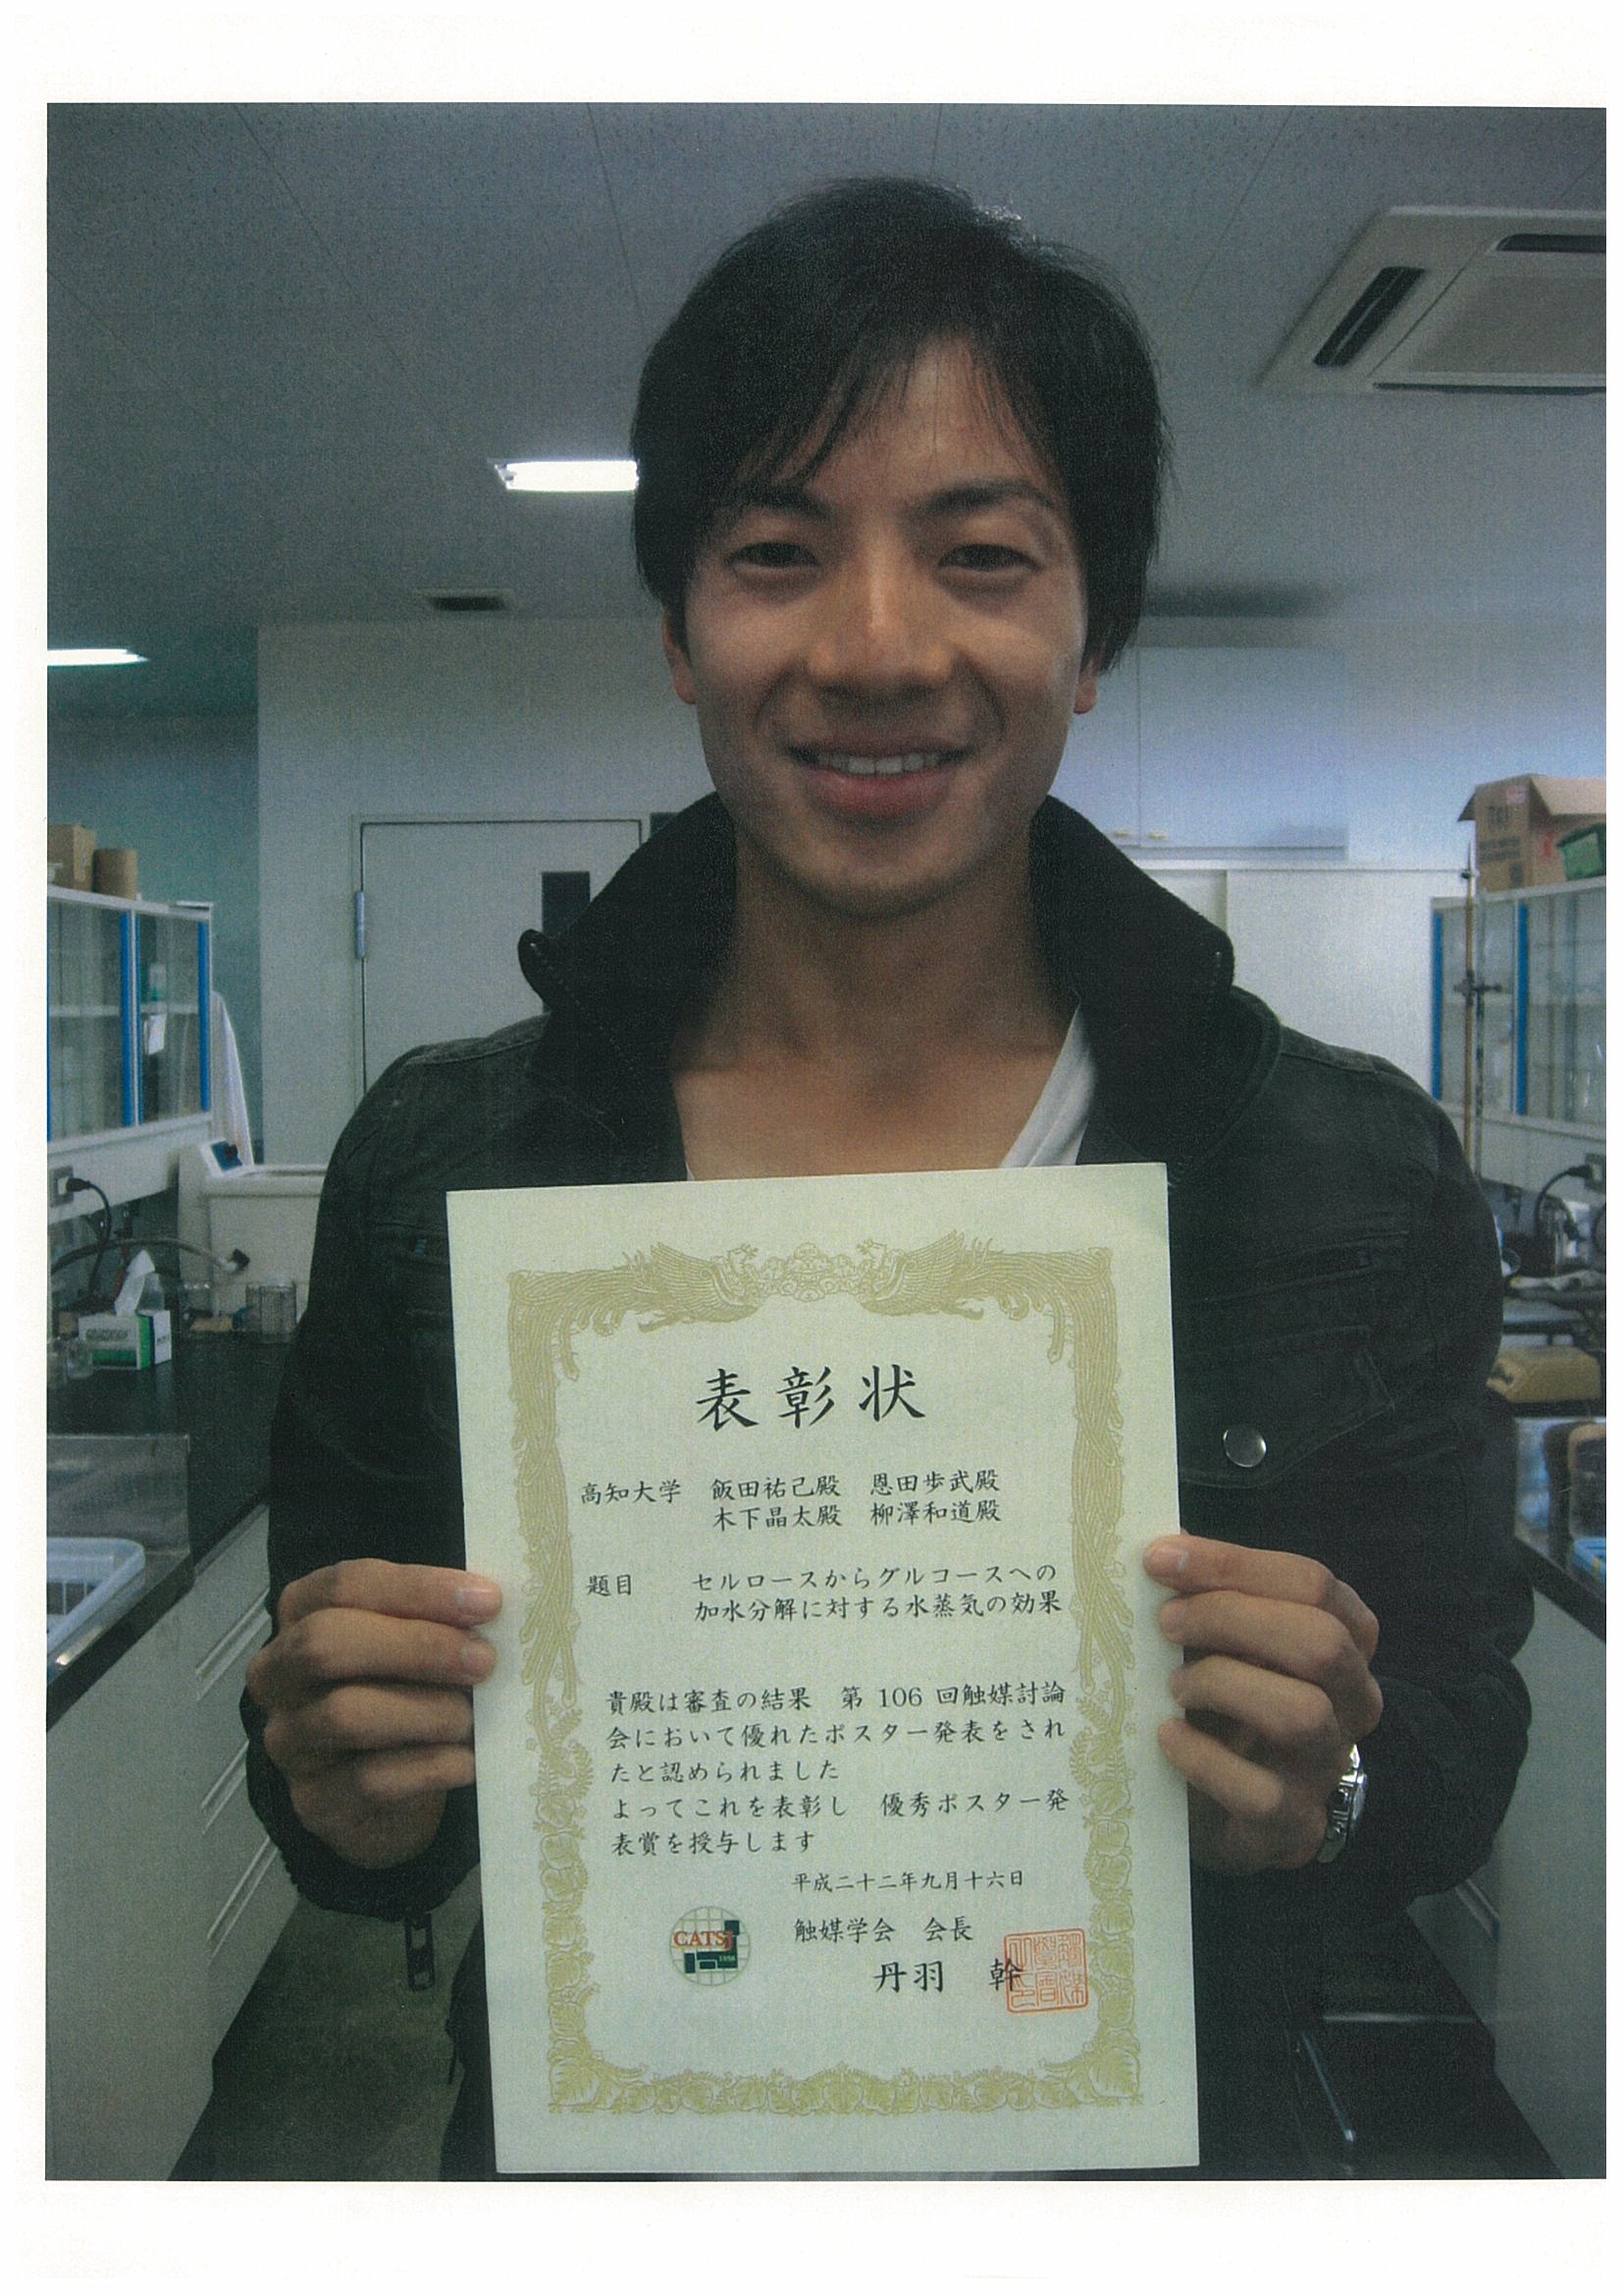 表彰状
高知大学 飯田祐己殿 恩田歩武殿
木下晶太殿 柳澤和道殿
題目 セルロースからグルコースへの
加水分解に対する水蒸気の効果
貴殿は審査の結果 第 106 回触媒討論
会において優れたポスター発表をされ
たと認められました
よってこれを表彰し 優秀ポスター発
表賞を授与します
平成二十二年九月十六日
触媒学会 会長
丹羽 幹
CATSJ
1958